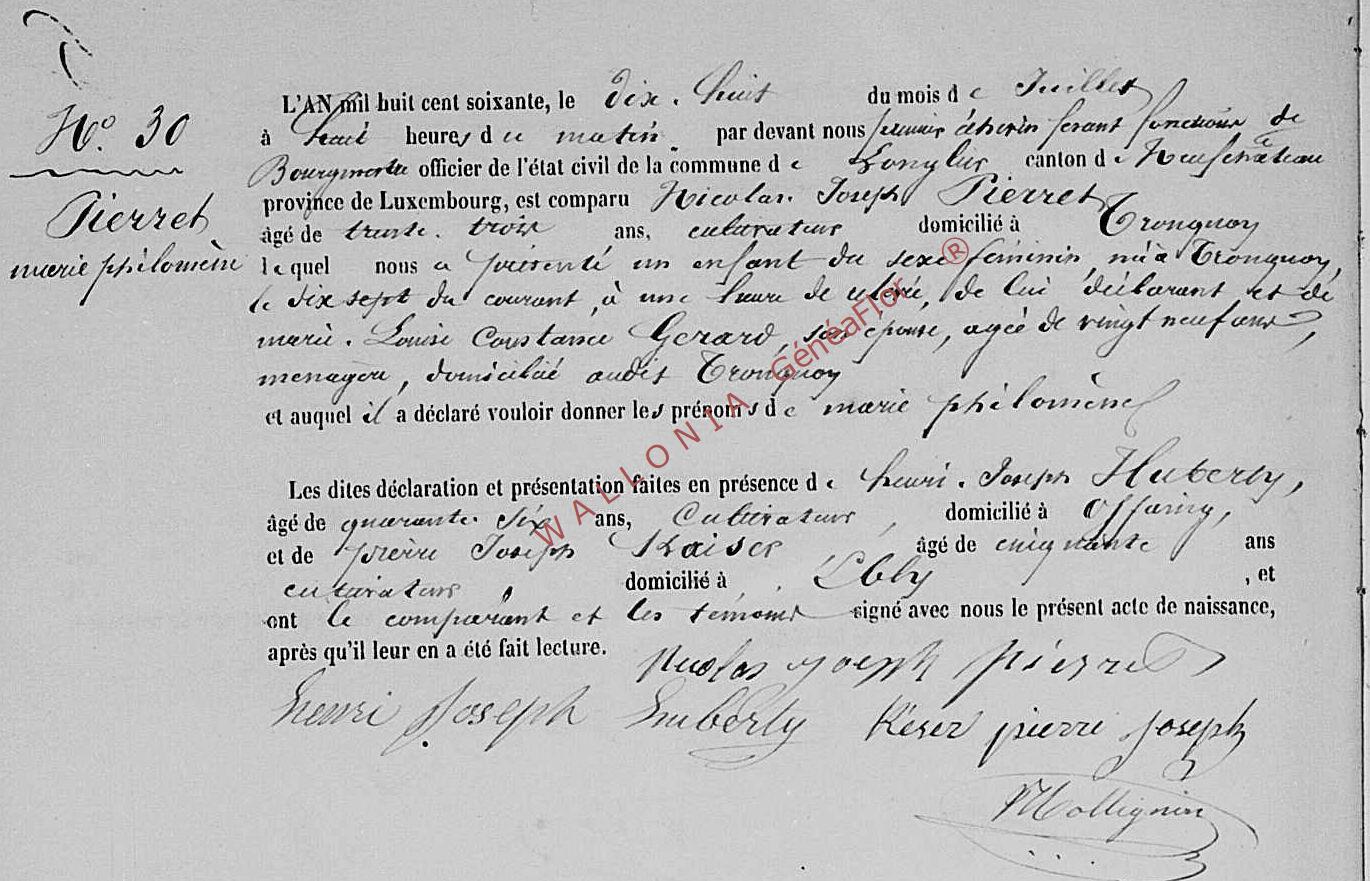 N.º 30
Pierret
marie philomène
L'AN mil huit cent soixante, le dix-huit du mois de Juillet
à huit heures du matin. par devant nous premier échevin ferant fonctions de
Bourgmestre officier de l'état civil de la commune de Longlier canton de Neufchâteau
province de Luxembourg, est comparu Nicolas Joseph Pierret
âgé de trente-trois ans, cultivateur domicilié à Tronquoy
lequel nous a présenté un enfant du sexe féminin né à Tronquoy,
le dix sept du courant, à une heure de, de lui déclarant et de
marie-Louise Constance Gerard, son épouse, agée de vingt neuf ans,
menagère, domicilié audit Tronquoy
et auquel il a déclaré vouloir donner les prénoms de marie philomène
Les dites déclaration et présentation faites en présence de henri-Joseph Huberty,
âgé de quarante-six ans, Cultivateur, domicilié à Offaing,
et de pierre Joseph Kaiser âgé de cinquante ans
cultivateur, domicilié à Ebly, et
ont le comparant et les témoins signé avec nous le présent acte de naissance,
après qu'il leur en a été fait lecture.
Nicolas joseph pierret
henri joseph huberty Keser pierre joseph
WALLONIA GénéaFlor ®